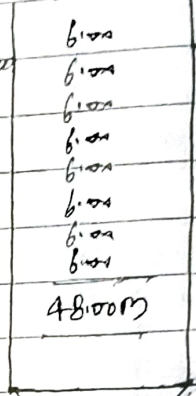 6.00
6.00
6.00
6.00
6.00
6.00
6.00
6.00
48.00m